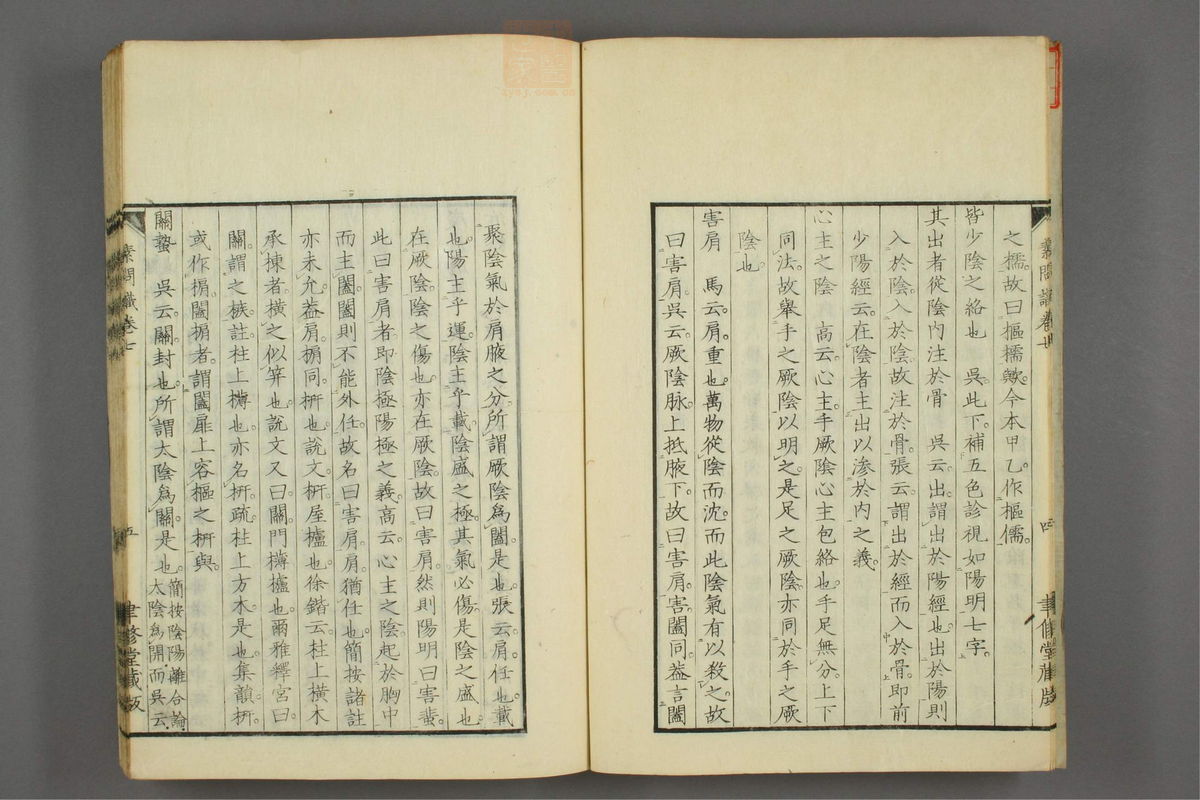 之檽故曰樞檽歟今本甲乙作樞儒
皆少陰之絡也 吳此下補五色診視如陽明七字
其出者從陰內注於骨 吳云出謂出於陽經也出於陽則
入於陰入於陰故注於骨張云謂出於經而入於骨即前
少陽經云在陰者主出以滲於內之義
心主之陰 高云心主手厥陰心主包絡也手足無分上下
同法故舉手之厥陰以明之是足之厥陰亦同於手之厥
陰也
害肩 馬云肩重也萬物從陰而沈而此陰氣有以殺之故
曰害肩吳云厥陰脉上抵腋下故曰害肩害闔同葢言闔
聚陰氣於肩腋之分所謂厥陰爲闔是也張云肩任也載
也陽主乎運陰主乎載陰盛之極其氣必傷是陰之盛也
在厥陰陰之傷也亦在厥陰故曰害肩然則陽明曰害蜚
此曰害肩者即陰極陽極之義高云心主之陰起於胸中
而主闔闔則不能外任故名曰害肩肩猶任也簡按諸註
亦未允葢肩掮同枅也說文枅屋櫨也徐鍇云柱上橫木
承棟者橫之似笄也說文又曰關門欂櫨也爾雅釋宮曰
關謂之槉註柱上欂也亦名枅疏柱上方木是也集韻枅
或作掮闔掮者謂闔扉上容樞之枅與
關蟄 吳云關封也所謂太陰爲關是也簡按陰陽離合論
太陰爲開而吳云
素問識卷七
五
聿修堂藏版
四